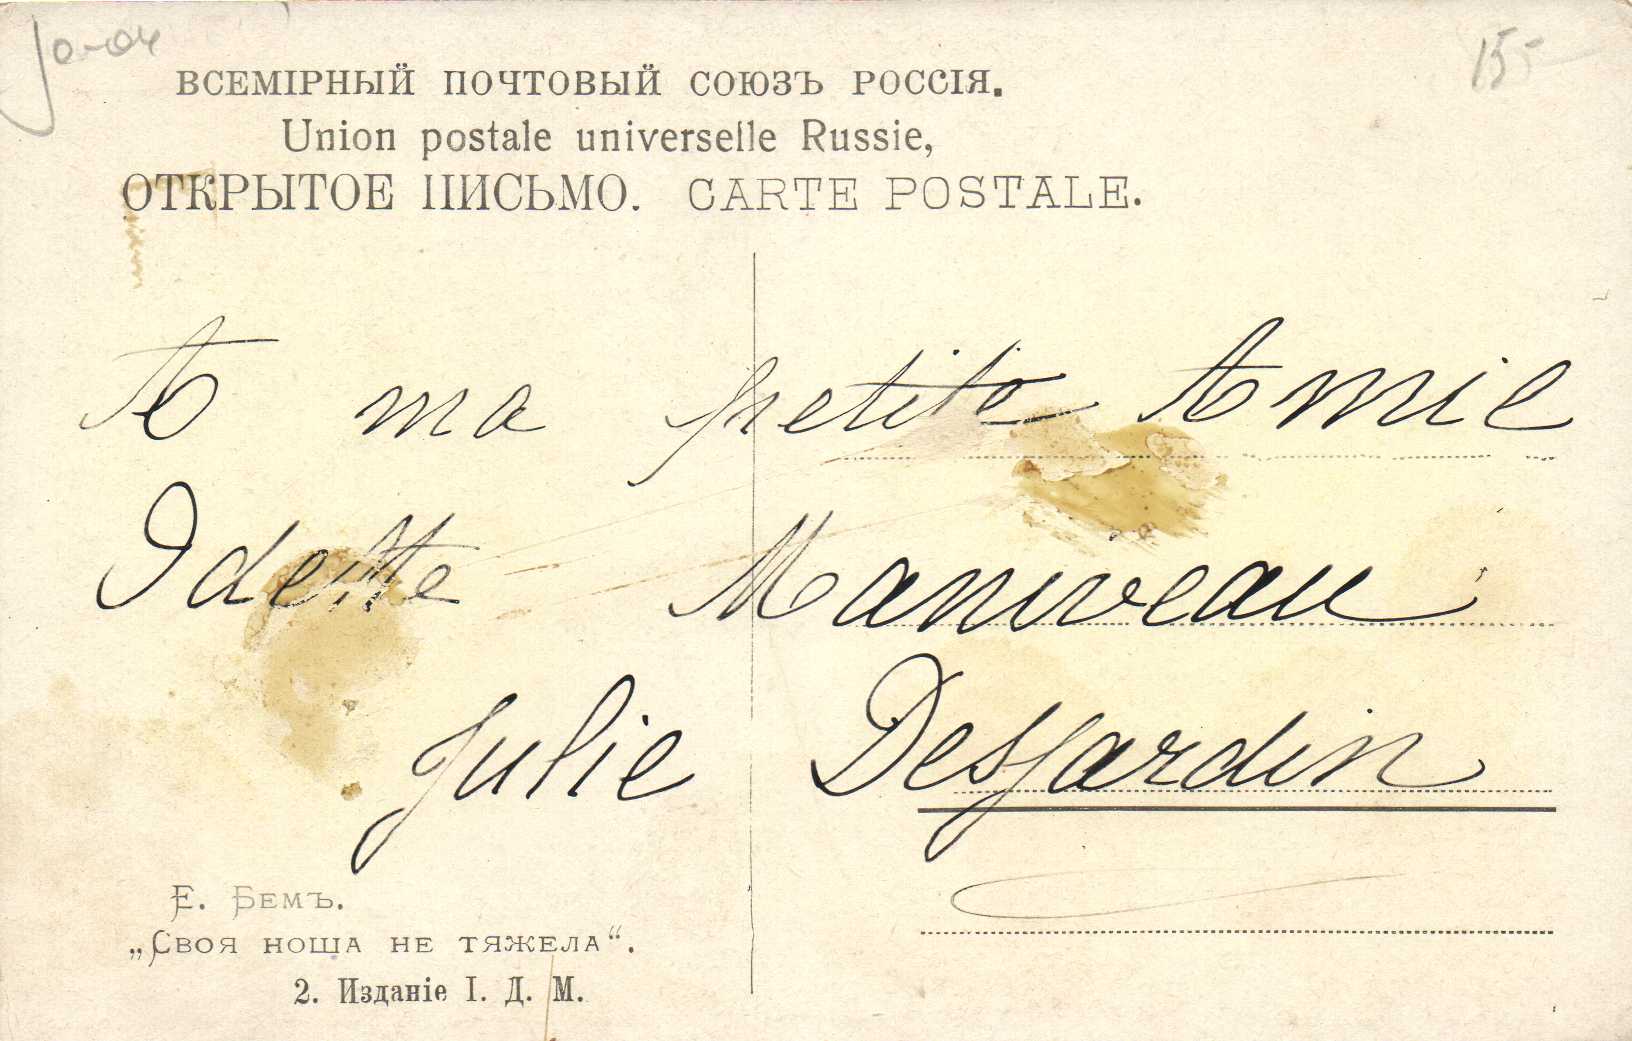 155
ВСЕМІРНЫЙ ПОЧТОВЫЙ СОЮЗЪ РОССІЯ.
Union postale universelle Russie,
ОТКРЫТОЕ ПИСЬМО. CARTE POSTALE.
A ma petite Amie
Odette Maniveau
Julie Desjardin
Е. Бемъ.
„Своя ноша не тяжела“.
2. Изданіе І. Д. М.